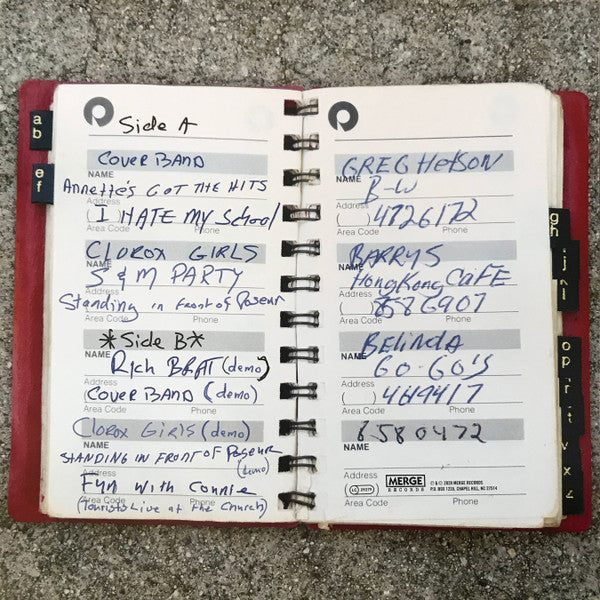 ab
ef
Side A
COVER BAND
NAME
Annette's GOT THE HITS
Address
( ) I HATE My School
Area Code Phone
CLOROX GIRLS
NAME
S & M PARTY
Address
Standing in Front of Poseur
Area Code Phone
*Side B*
NAME
Rich BRAT (demo)
Address
COVER BAND (demo)
Area Code Phone
Clorox Girls (demo)
NAME
STANDING IN FRONT OF Poseur
(demo)
Address
Fun with Connie
Area Code Phone
(Tourists Live at The Church)
GREG HetSON
NAME
B-W
Address
( ) 4726172
Area Code Phone
BARRY S
NAME
HongKong CaFE
Address
( ) 8586907
Area Code Phone
BELINDA
NAME
GO-GO'S
Address
( ) 4619417
Area Code Phone
6580472
NAME
Address
MERGE
RECORDS
℗ & © 2020 MERGE RECORDS
P.O. BOX 1235, CHAPEL HILL, NC 27514
Area Code Phone
gh
op
v
x
z